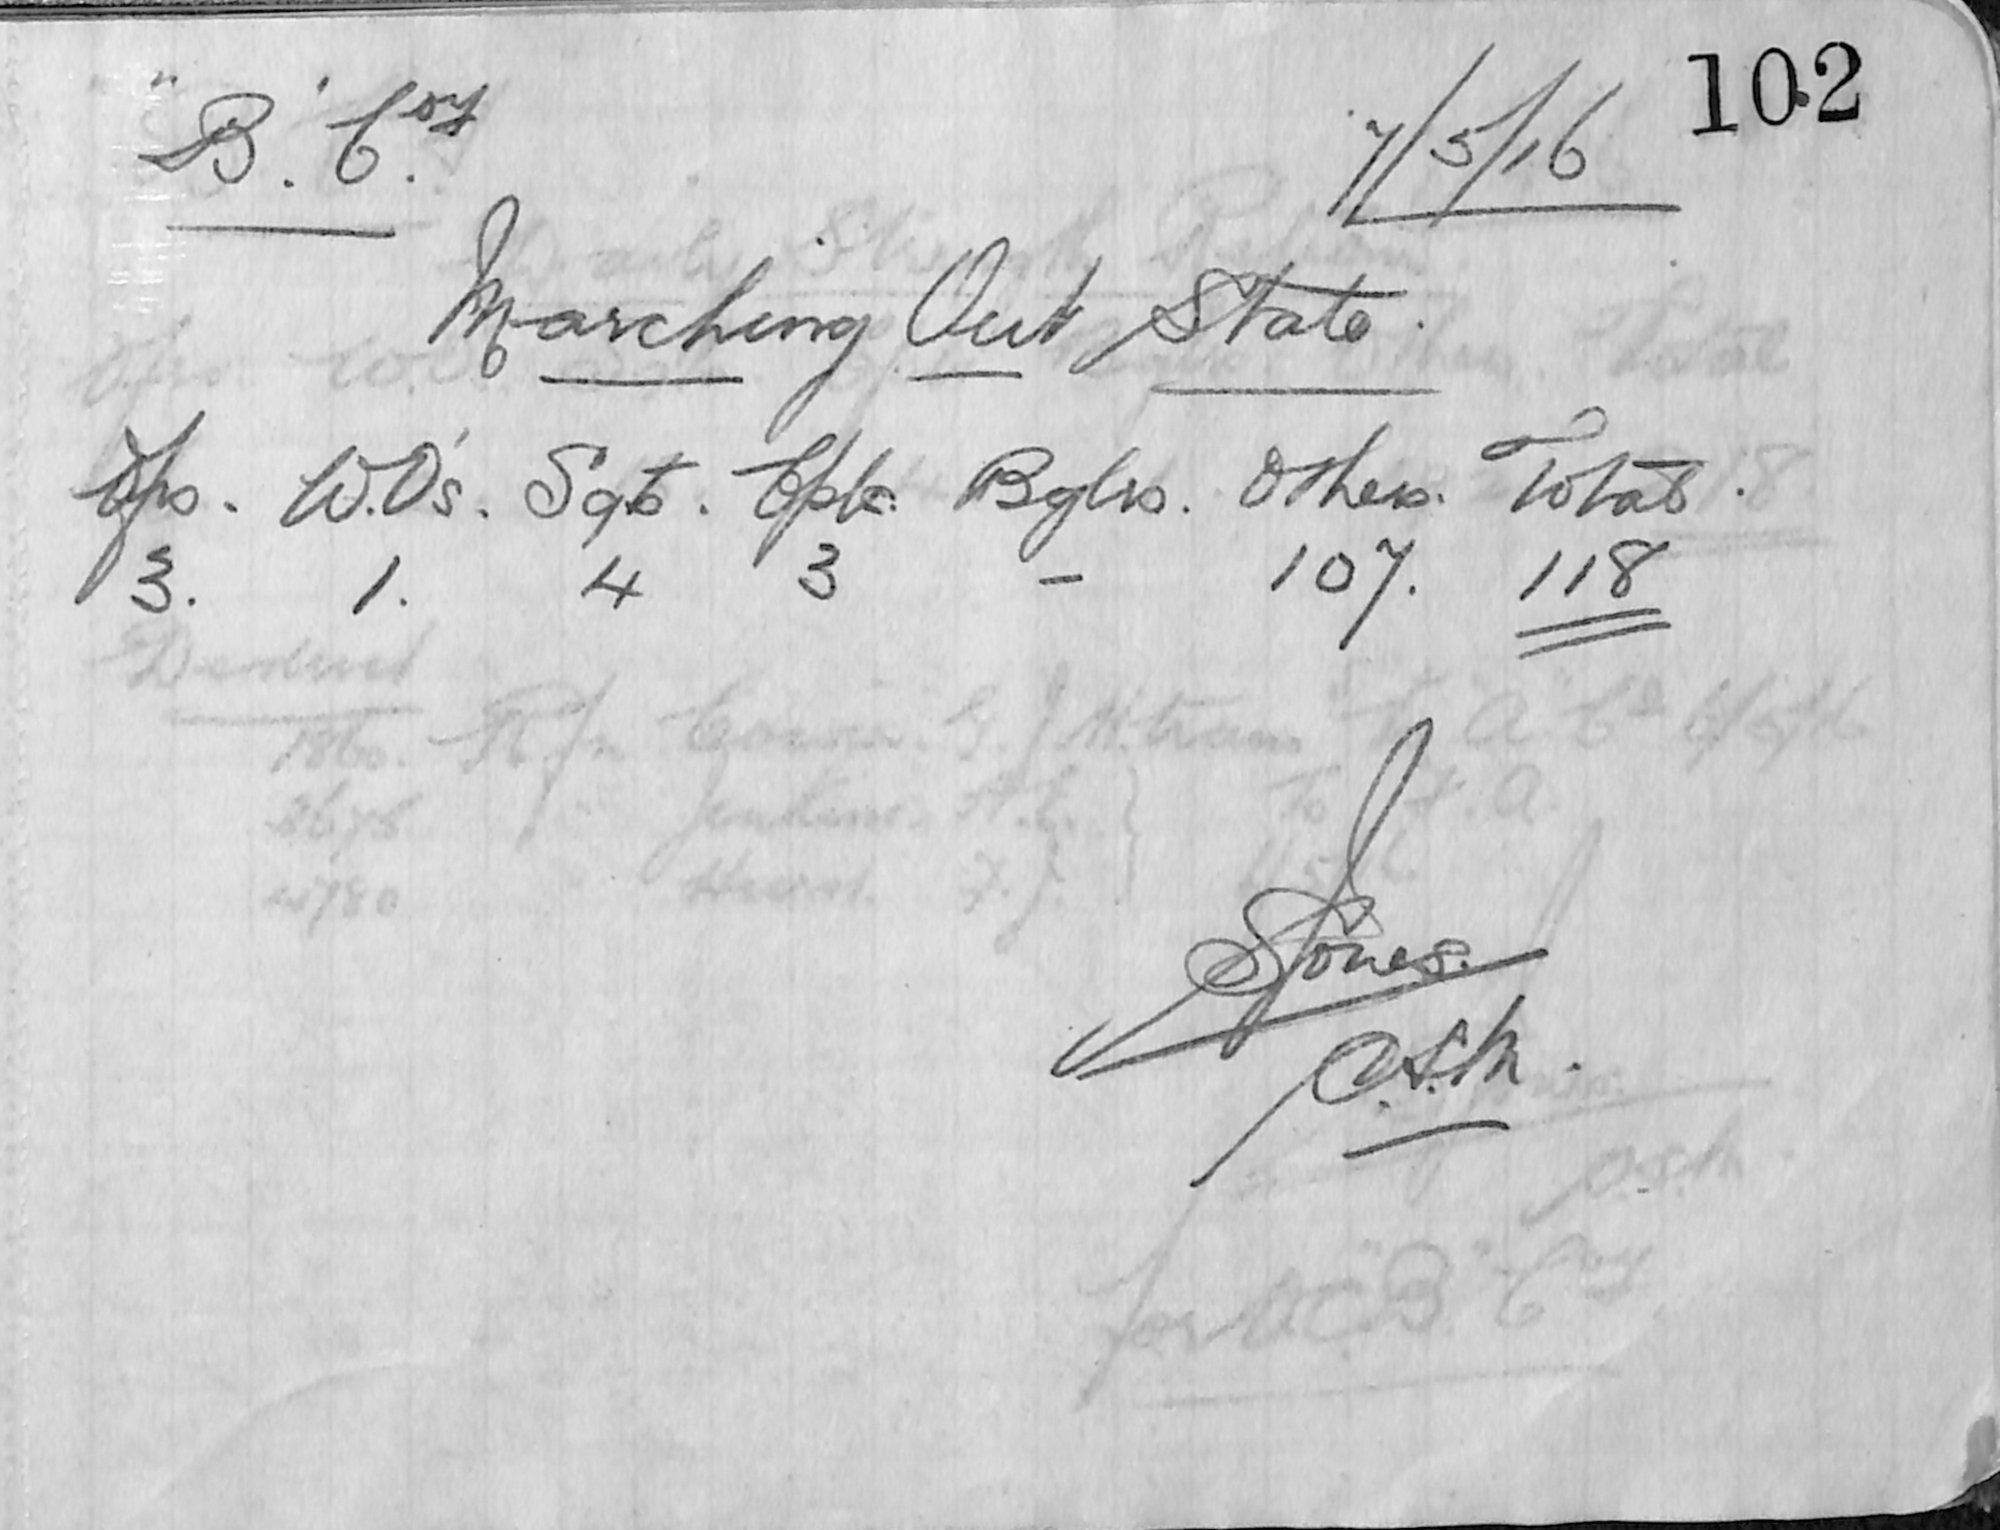 102
"B". Coy. 7/5/16
Marching Out State.
Ofrs. W.O's. Sgts. Cpls. Bglrs. Others. Total.
3. 1. 4 3 - 107. 118
SJones.
C.S.M.